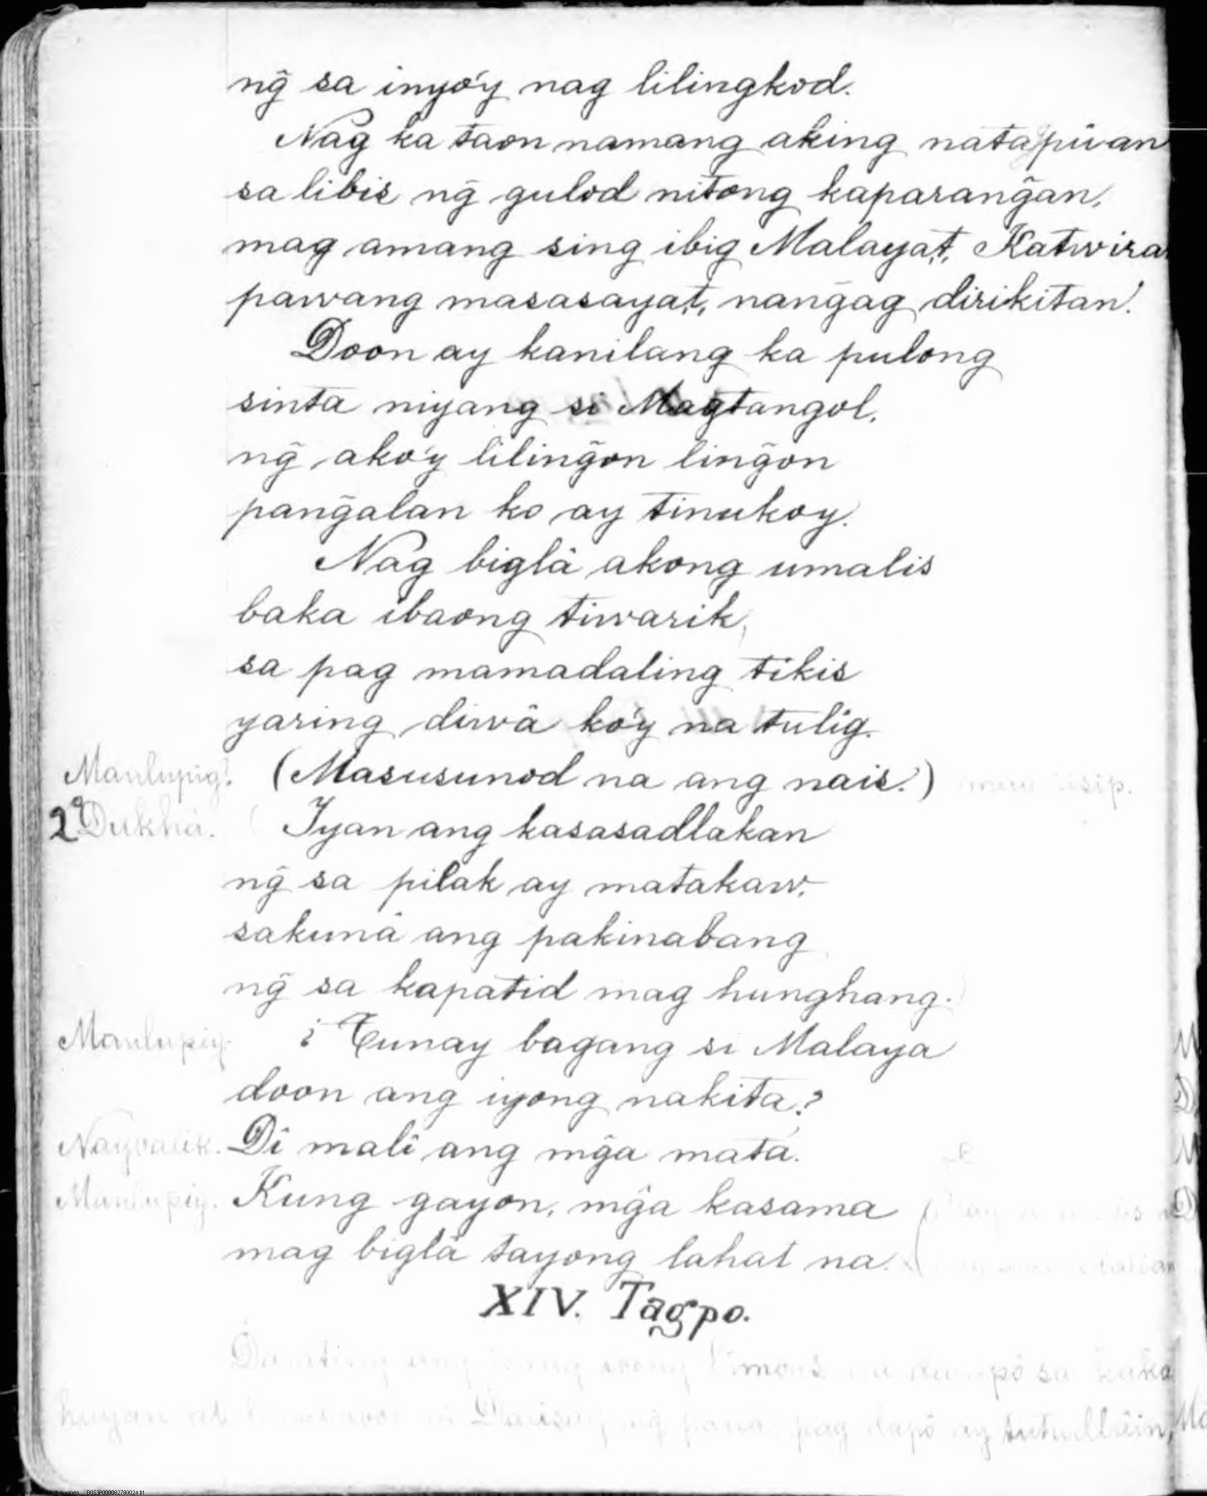 ng̃ sa inyo'y nag lilingkod.
Nag ka taon namang aking natagpuan
sa libis ng̃ gulod nitong kaparang̃an,
mag amang sing ibig Malaya,t, Katwira
pawang masasaya,t, nang̃ag dirikitan!
Doon ay kanilang ka pulong
sinta niyang si Magtangol,
ng̃ ako'y liling̃on ling̃on
pang̃alan ko ay tinukoy.
Nag biglâ akong umalis
baka ibaong tiwarik,
sa pag mamadaling tikis
yaring diwâ ko'y na tulig.
Manlupig. (Masusunod na ang nais.) isip.
2º Dukha. ( Iyan ang kasasadlakan
ng̃ sa pilak ay matakaw,
sakunâ ang pakinabang
ng̃ sa kapatid mag hunghang.)
Manlupig. ¿Tunay bagang si Malaya
doon ang iyong nakita?
Nagbalik. Di mali ang mg̃a mata.
Manlupig. Kung gayon, mg̃a kasama
mag biglâ tayong lahat na.
XIV. Tagpo.
Darating ang isang ibong sa
pag dapò ay tutudlâin,